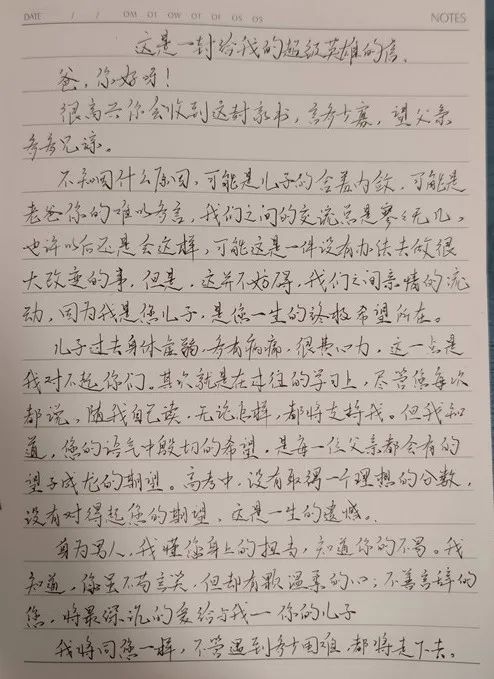 DATE / / MON TUE WED THU FRI SAT SUN NOTES
这是一封给我的超级英雄的信.
爸，你好呀！
很高兴你会收到这封家书，言多才寡，望父亲
多多见谅。
不知因什么原因，可能是儿子的含羞内敛，可能是
老爸你的难以多言，我们之间的交流总是寥寥无几，
也许以后还是会这样，可能这是一件没有办法去做很
大改变的事，但是，这并不妨碍，我们之间亲情的流
动，因为我是您儿子，是您一生的终极希望所在。
儿子过去身体虚弱，多有病痛，很费心力，这一点是
我对不起你们。其次就是在过往的学习上，尽管您每次
都说，随我自己读，无论怎样，都将支持我。但我知
道，您的语气中殷切的希望，是每一位父亲都会有的
望子成龙的期望。高考中，没有取得一个理想的分数，
没有对得起您的期望，这是一生的遗憾。
身为男人，我懂你身上的担当，知道你的不易。我
知道，你虽不苟言笑，但却有颗温柔的心；不善言辞的
您，将最深沉的爱给与我一你的儿子
我将同您一样，不管遇到多少困难，都将走下去。